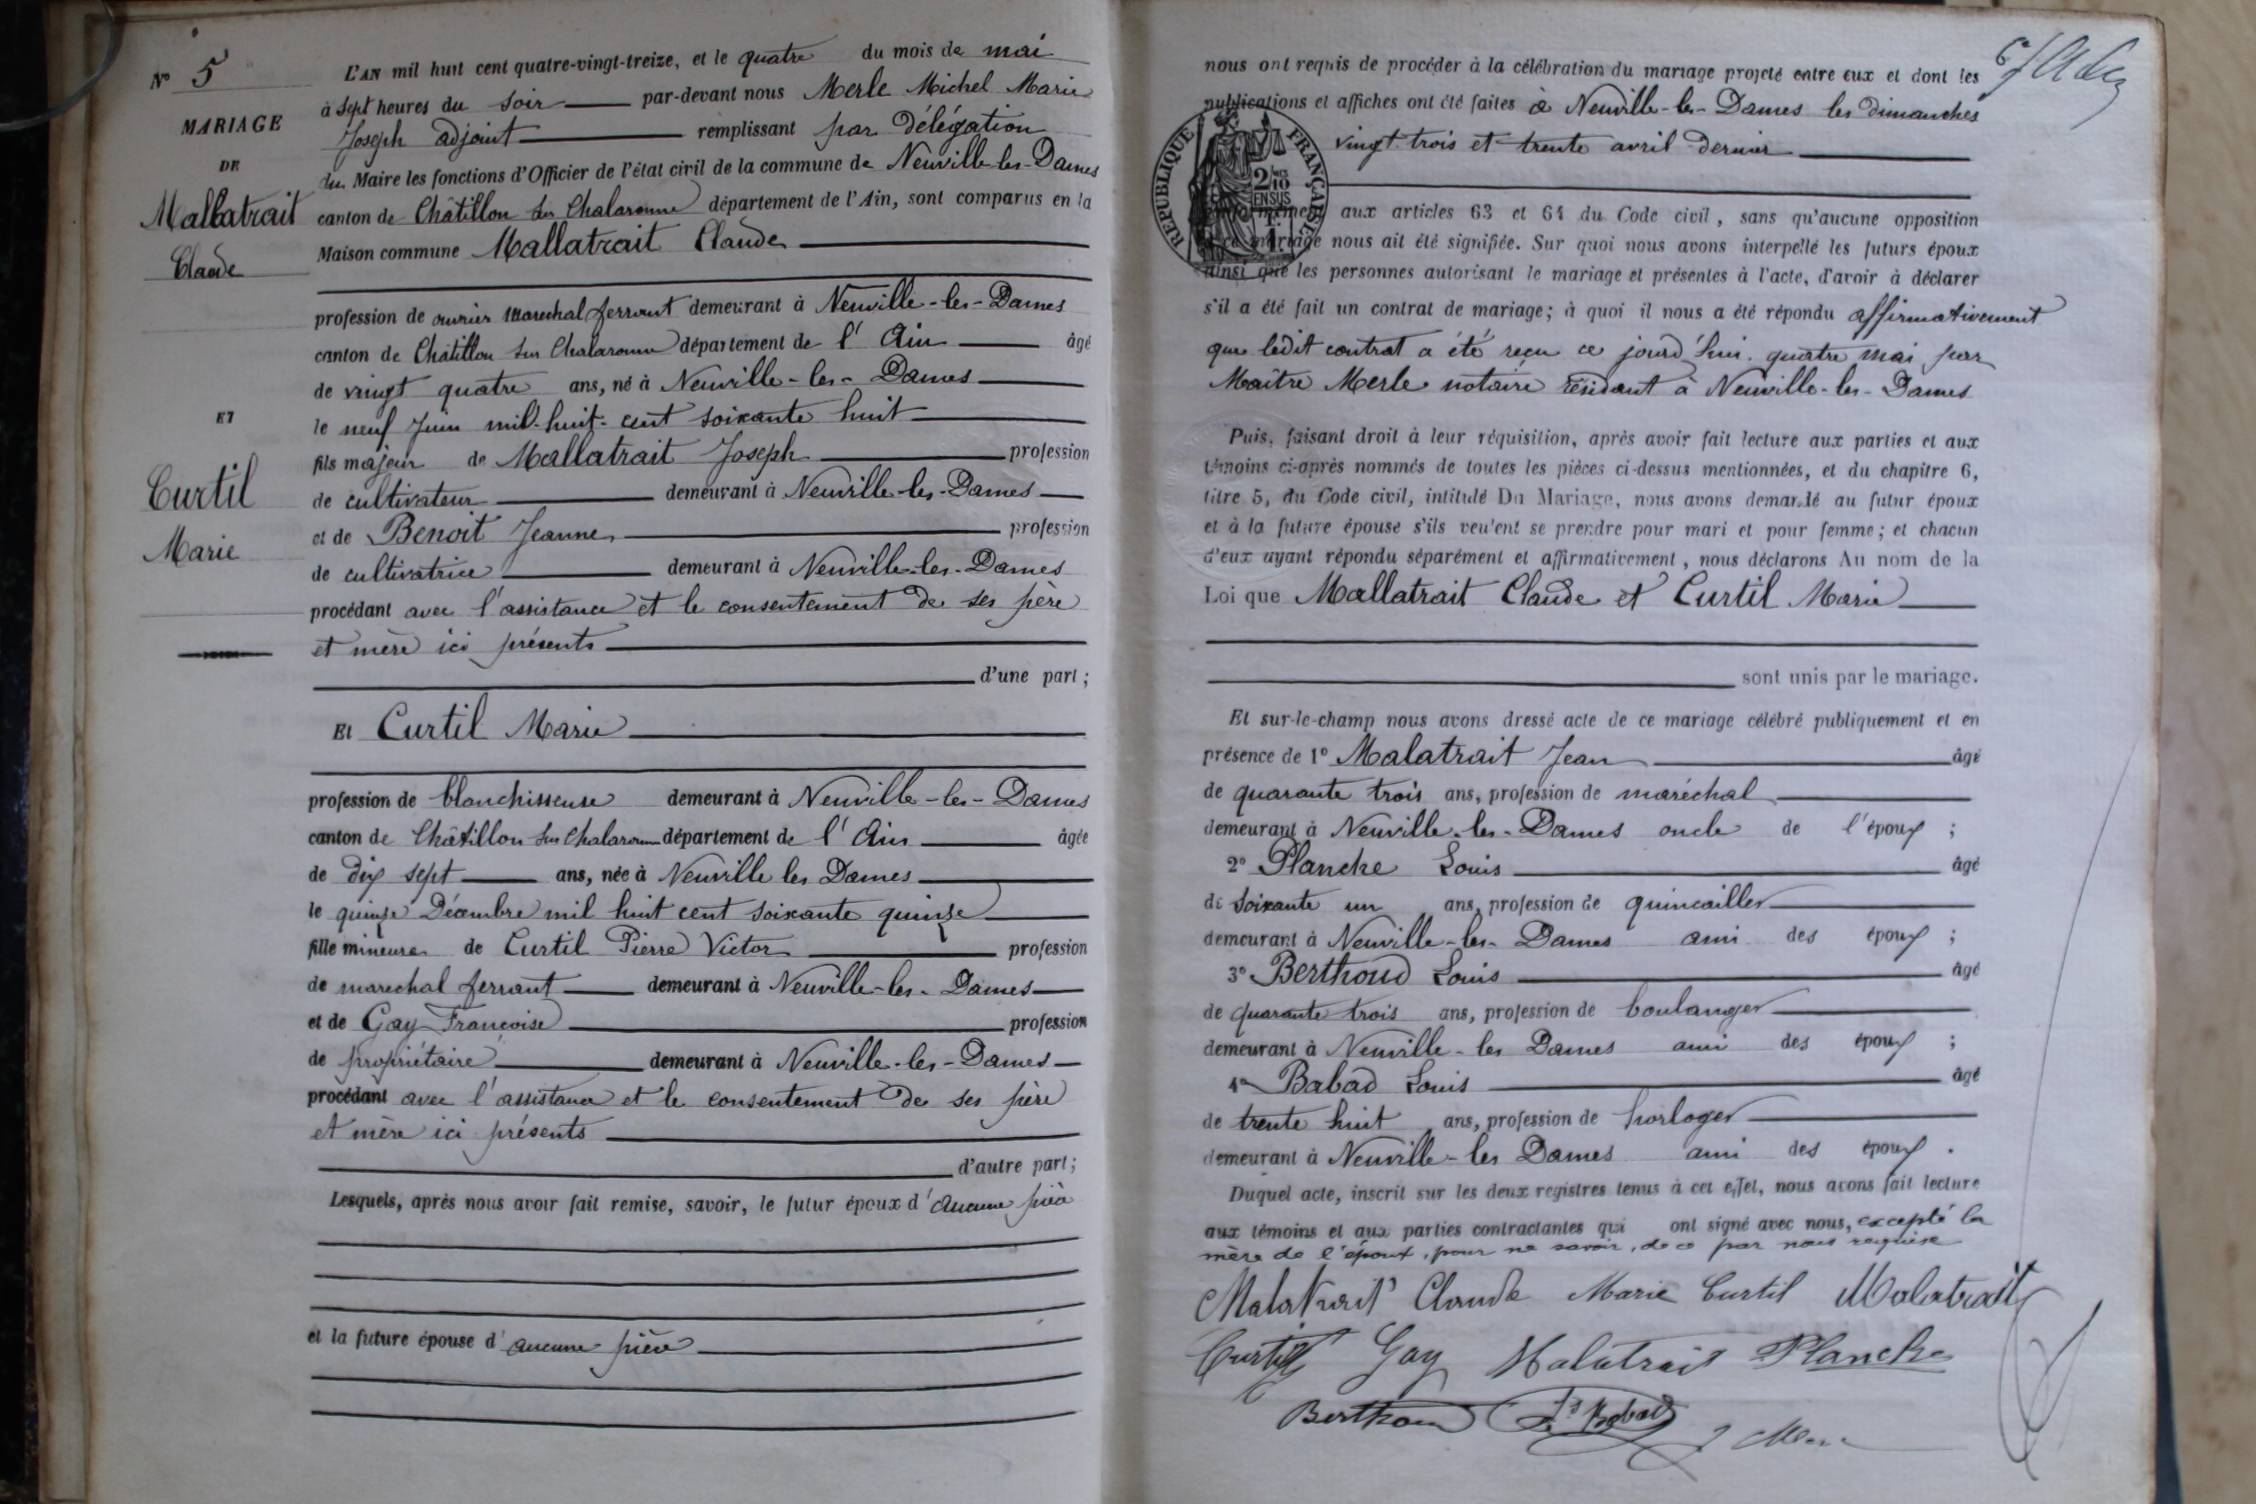 N° 5
MARIAGE
DE
Mallatrait
Claude
ET
Curtil
Marie
L'AN mil huit cent quatre-vingt-treize, et le quatre du mois de mai
à sept heures du soir par-devant nous Merle Michel Marie
Joseph adjoint remplissant par délégation
du Maire les fonctions d'Officier de l'état civil de la commune de Neuville-les-Dames
canton de Châtillon sur Chalaronne département de l'Ain, sont comparus en la
Maison commune Mallatrait Claude
profession de ouvrier marechal ferrant demeurant à Neuville-les-Dames
canton de Châtillon sur Chalaronne département de l'Ain âgé
de vingt quatre ans, né à Neuville-les-Dames
le neuf juin mil-huit-cent soixante huit
fils majeur de Mallatrait Joseph profession
de cultivateur demeurant à Neuville-les-Dames
et de Benoit Jeanne profession
de cultivatrice demeurant à Neuville-les-Dames
procédant avec l'assistance et le consentement de ses père
et mère ici présents
d'une part;
Et Curtil Marie
profession de blanchisseuse demeurant à Neuville-les-Dames
canton de Châtillon sur Chalaronne département de l'Ain âgée
de dix sept ans, née à Neuville les Dames
le quinze Décembre mil huit cent soixante quinze
fille mineure de Curtil Pierre Victor profession
de marechal ferrant demeurant à Neuville-les-Dames
et de Gay Françoise profession
de propriétaire demeurant à Neuville-les-Dames
procédant avec l'assistance et le consentement de ses père
et mère ici présents
d'autre part;
Lesquels, après nous avoir fait remise, savoir, le futur époux d'aucune pièce
et la future épouse d'aucune pièce
nous ont requis de procéder à la célébration du mariage projeté entre eux et dont les
publications et affiches ont été faites à Neuville-les-Dames les dimanches
vingt-trois et trente avril dernier
RÉPUBLIQUE FRANÇAISE
2/10 EN SUS
conformément aux articles 63 et 64 du Code civil, sans qu'aucune opposition
à ce mariage nous ait été signifiée. Sur quoi nous avons interpellé les futurs époux
ainsi que les personnes autorisant le mariage et présentes à l'acte, d'avoir à déclarer
s'il a été fait un contrat de mariage; à quoi il nous a été répondu affirmativement
que ledit contrat a été reçu ce jourd'hui quatre mai par
Maître Merle notaire résidant à Neuville-les-Dames
Puis, faisant droit à leur réquisition, après avoir fait lecture aux parties et aux
témoins ci-après nommés de toutes les pièces ci-dessus mentionnées, et du chapitre 6,
titre 5, du Code civil, intitulé Du Mariage, nous avons demandé au futur époux
et à la future épouse s'ils veulent se prendre pour mari et pour femme; et chacun
d'eux ayant répondu séparément et affirmativement, nous déclarons Au nom de la
Loi que Mallatrait Claude et Curtil Marie
sont unis par le mariage.
Et sur-le-champ nous avons dressé acte de ce mariage célébré publiquement et en
présence de 1° Malatrait Jean âgé
de quarante trois ans, profession de maréchal
demeurant à Neuville-les-Dames oncle de l'époux ;
2° Planche Louis âgé
de soixante un ans, profession de quincailler
demeurant à Neuville-les-Dames ami des époux ;
3° Berthoud Louis âgé
de quarante trois ans, profession de boulanger
demeurant à Neuville-les Dames ami des époux ;
4° Babad Louis âgé
de trente huit ans, profession de horloger
demeurant à Neuville-les Dames ami des époux .
Duquel acte, inscrit sur les deux registres tenus à cet effet, nous avons fait lecture
aux témoins et aux parties contractantes qui ont signé avec nous, excepté la
mère de l'époux, pour ne savoir, de ce par nous requise
Malatrait Claude Marie Curtil Malatrait
Curtil Gay Malatrait Planche
Berthoud Ls Babad J Merle